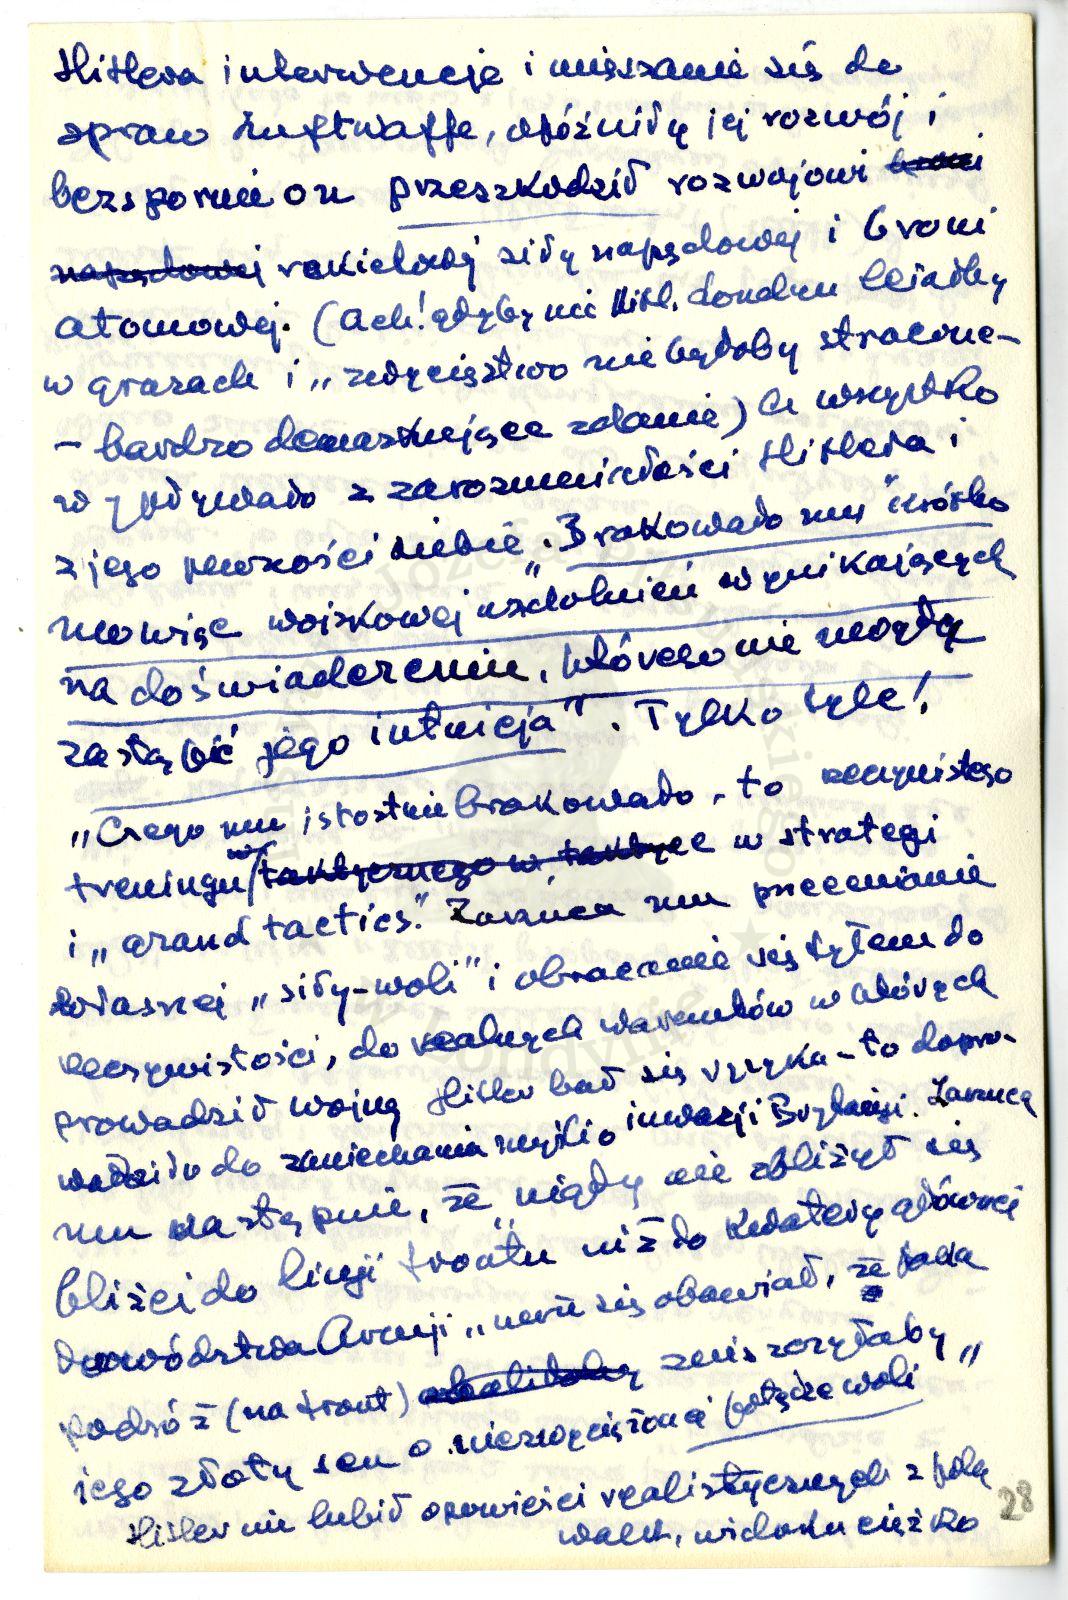 Hitlera interwencje i mieszanie się do
spraw Luftwaffe, opóźniły jej rozwój i
bezspornie on przeszkodził rozwojowi broni
napędowej rakietowej siły napędowej i broni
atomowej. (Ach! gdyby nie Hitl. Londyn leżałby
w gruzach i „zwycięstwo nie byłoby stracone -
- bardzo demaskujące zdanie) A wszystko
wypływało z zarozumiałości Hitlera i
z jego pewności siebie. „Brakowało mu krótko
mówiąc wojskowej uzdolnień wynikających
na doświadczeniu, którego nie mogła
zastąpić jego intuicja". Tylko tyle!
„Czego mu istotnie brakowało - to rzeczywistego
treningu w taktycznego w taktyce w strategi
i „grand tactics." Zarzuca mu przecenianie
własnej „siły-woli" i obracanie się tyłem do
rzeczywistości, do realnych warunków w których
prowadził wojnę Hitler bał się ryzyka - to dopro-
wadziło do zaniechania myśli o inwazji Brytanji. Zarzuca
mu następnie, że „nigdy nie zbliżył się
bliżej do linji frontu niż do kwatery głównej
dowództwa Armji „ się obawiał, że jaka
podróż (na front) zniszczyłaby „
jego złoty sen o niezwyciężonej potędze woli
Hitler nie lubił opowieści realistycznych z pola
walk, widoku ciężko
28
Józefa Piłsudskiego
w Londynie